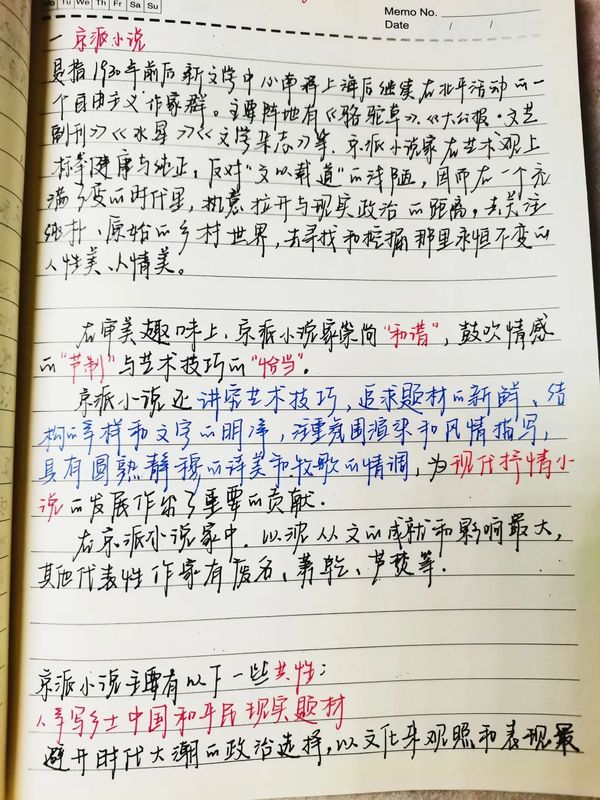 Mo Tu We Th Fr Sa Su
Memo No.
Date / /
一 京派小说
是指1930年前后新文学中心南移上海后继续在北平活动的一
个自由主义作家群。主要阵地有《骆驼草》、《大公报·文艺
副刊》《水星》《文学杂志》等。京派小说家在艺术观上
标举健康与纯正,反对"文以载道"的浅陋,因而在一个充
满了变的时代里,执意拉开与现实政治的距离,去关注
纯朴、原始的乡村世界,去寻找和挖掘那里永恒不变的
人性美、人情美。
在审美趣味上,京派小说家崇尚"和谐",鼓吹情感
的"节制"与艺术技巧的"恰当"。
京派小说还讲究艺术技巧,追求题材的新鲜、结
构的多样和文字的明净,注重氛围渲染和风情描写,
具有圆熟静穆的诗美和牧歌的情调,为现代抒情小
说的发展作出了重要的贡献.
在京派小说家中,以沈从文的成就和影响最大,
其他代表性作家有废名、萧乾、芦焚等.
京派小说主要有以下一些共性:
1、多写乡土中国和平民现实题材
避开时代大潮的政治选择,以文化来观照和表现最